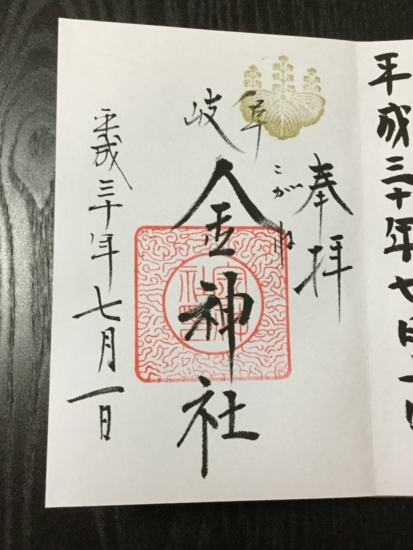 平成三十年七月一日
奉拝
岐阜
こがね
金神社
平成三十年七月一日